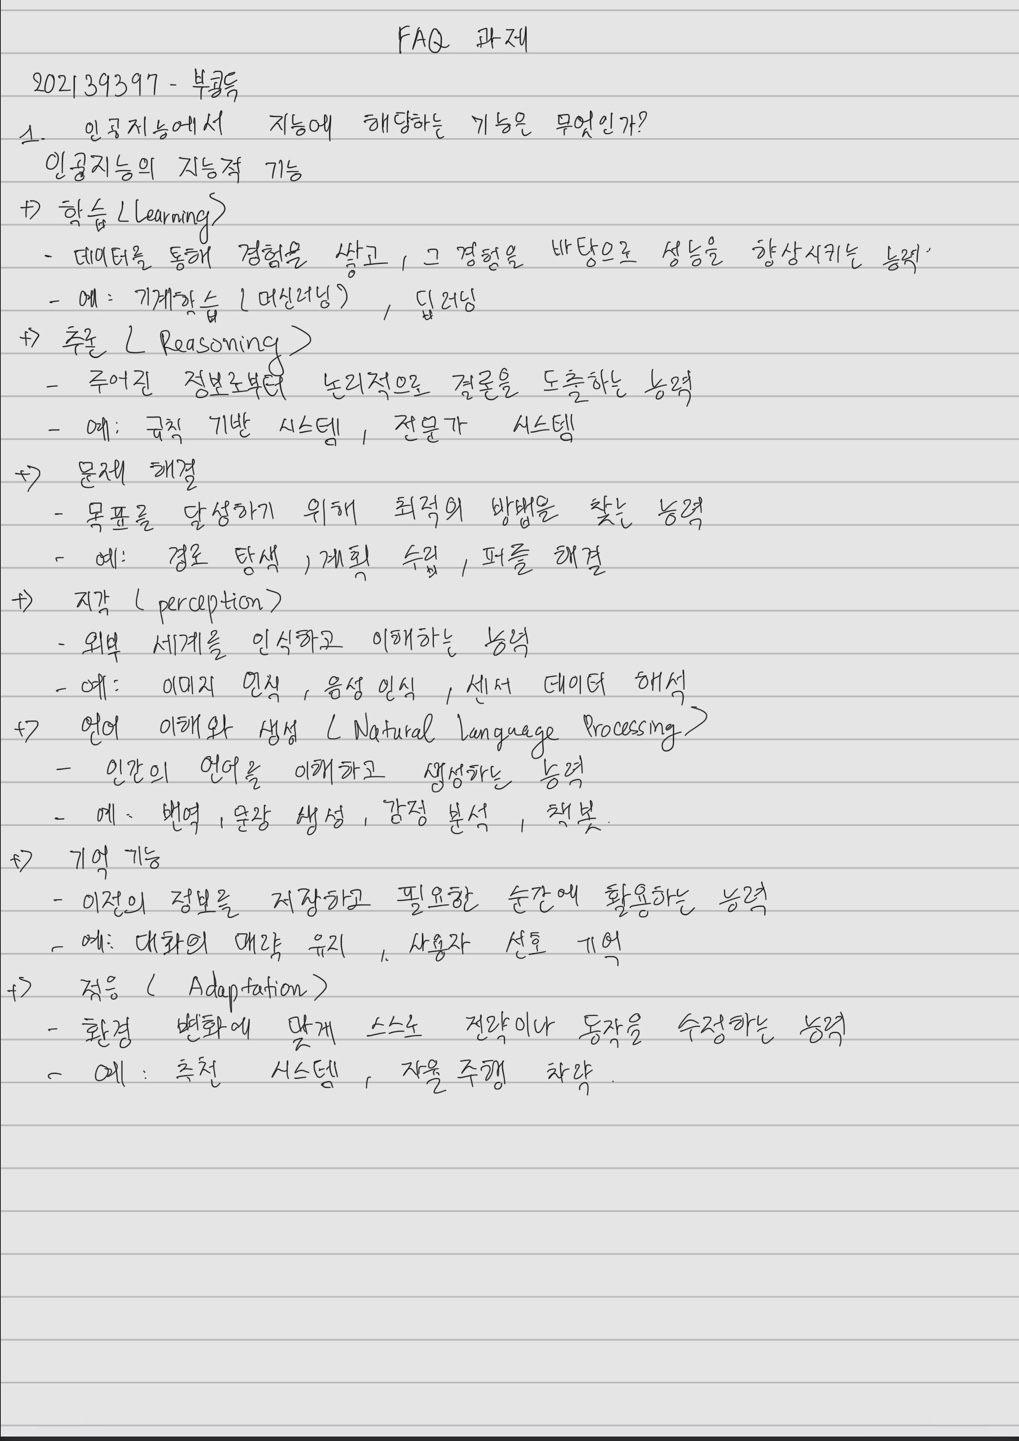 FAQ 과제
202139397 - 부콩득
1. 인공지능에서 지능에 해당하는 기능은 무엇인가?
인공지능의 지능적 기능
+> 학습 (Learning)
- 데이터를 통해 경험을 쌓고, 그 경험을 바탕으로 성능을 향상시키는 능력.
- 예: 기계학습 (머신러닝), 딥러닝
+> 추론 (Reasoning)
- 주어진 정보로부터 논리적으로 결론을 도출하는 능력
- 예: 규칙 기반 시스템, 전문가 시스템
+> 문제 해결
- 목표를 달성하기 위해 최적의 방법을 찾는 능력
- 예: 경로 탐색, 계획 수립, 퍼즐 해결
+> 지각 (perception)
- 외부 세계를 인식하고 이해하는 능력
- 예: 이미지 인식, 음성 인식, 센서 데이터 해석
+> 언어 이해와 생성 (Natural Language Processing)
- 인간의 언어를 이해하고 생성하는 능력
- 예: 번역, 문장 생성, 감정 분석, 책봇.
+> 기억 기능
- 이전의 정보를 저장하고 필요한 순간에 활용하는 능력
- 예: 대화의 매략 유지, 사용자 선호 기억
+> 적응 (Adaptation)
- 환경 변화에 맞게 스스로 전략이나 동작을 수정하는 능력
- 예: 추천 시스템, 자율 주행 차략.